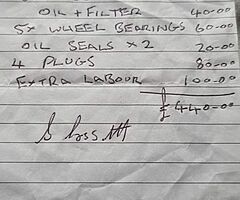 OIL + FILTER 40-00
5x WHEEL BEARINGS 60-00
OIL SEALS x 2 20-00
4 PLUGS 30-00
EXTRA LABOUR 100-00
£ 440-00